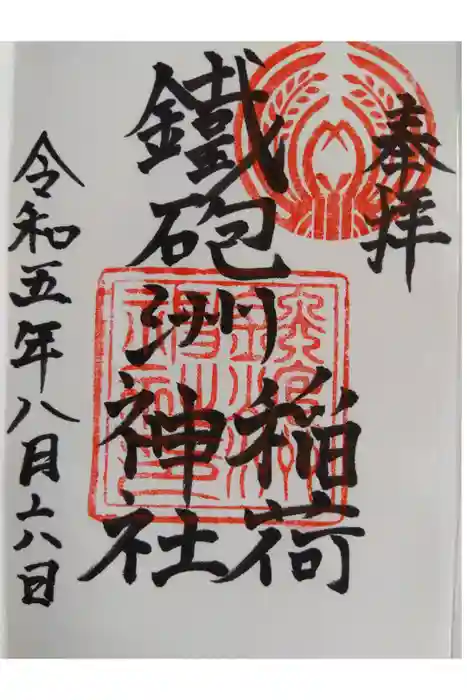 奉拝
鐵砲洲
稲荷
神社
令和五年八月十六日